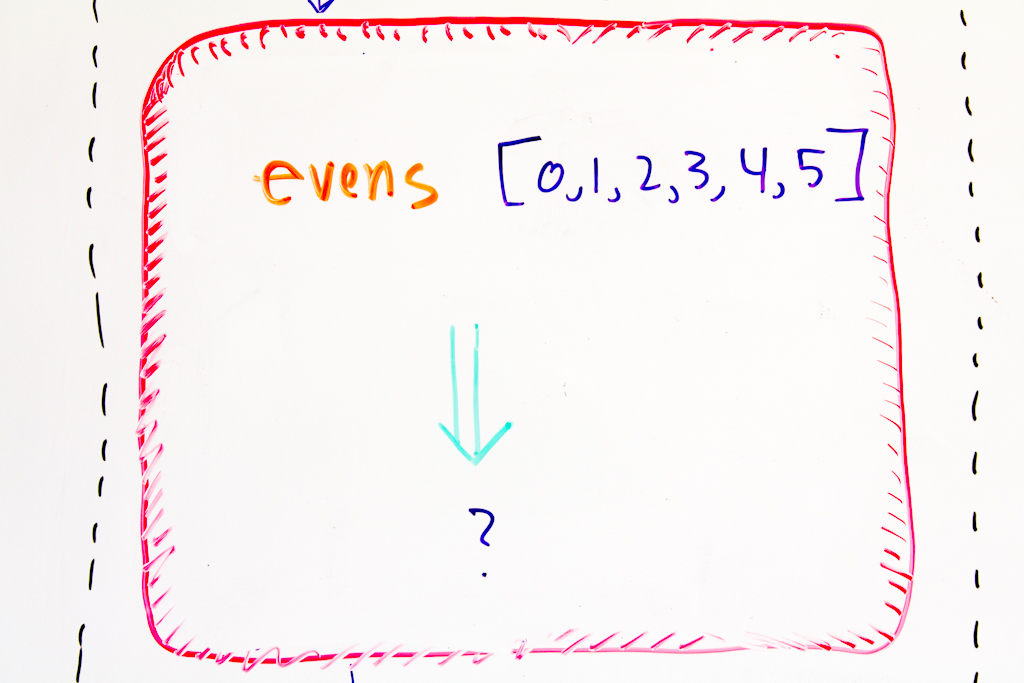 evens [0,1,2,3,4,5]
?